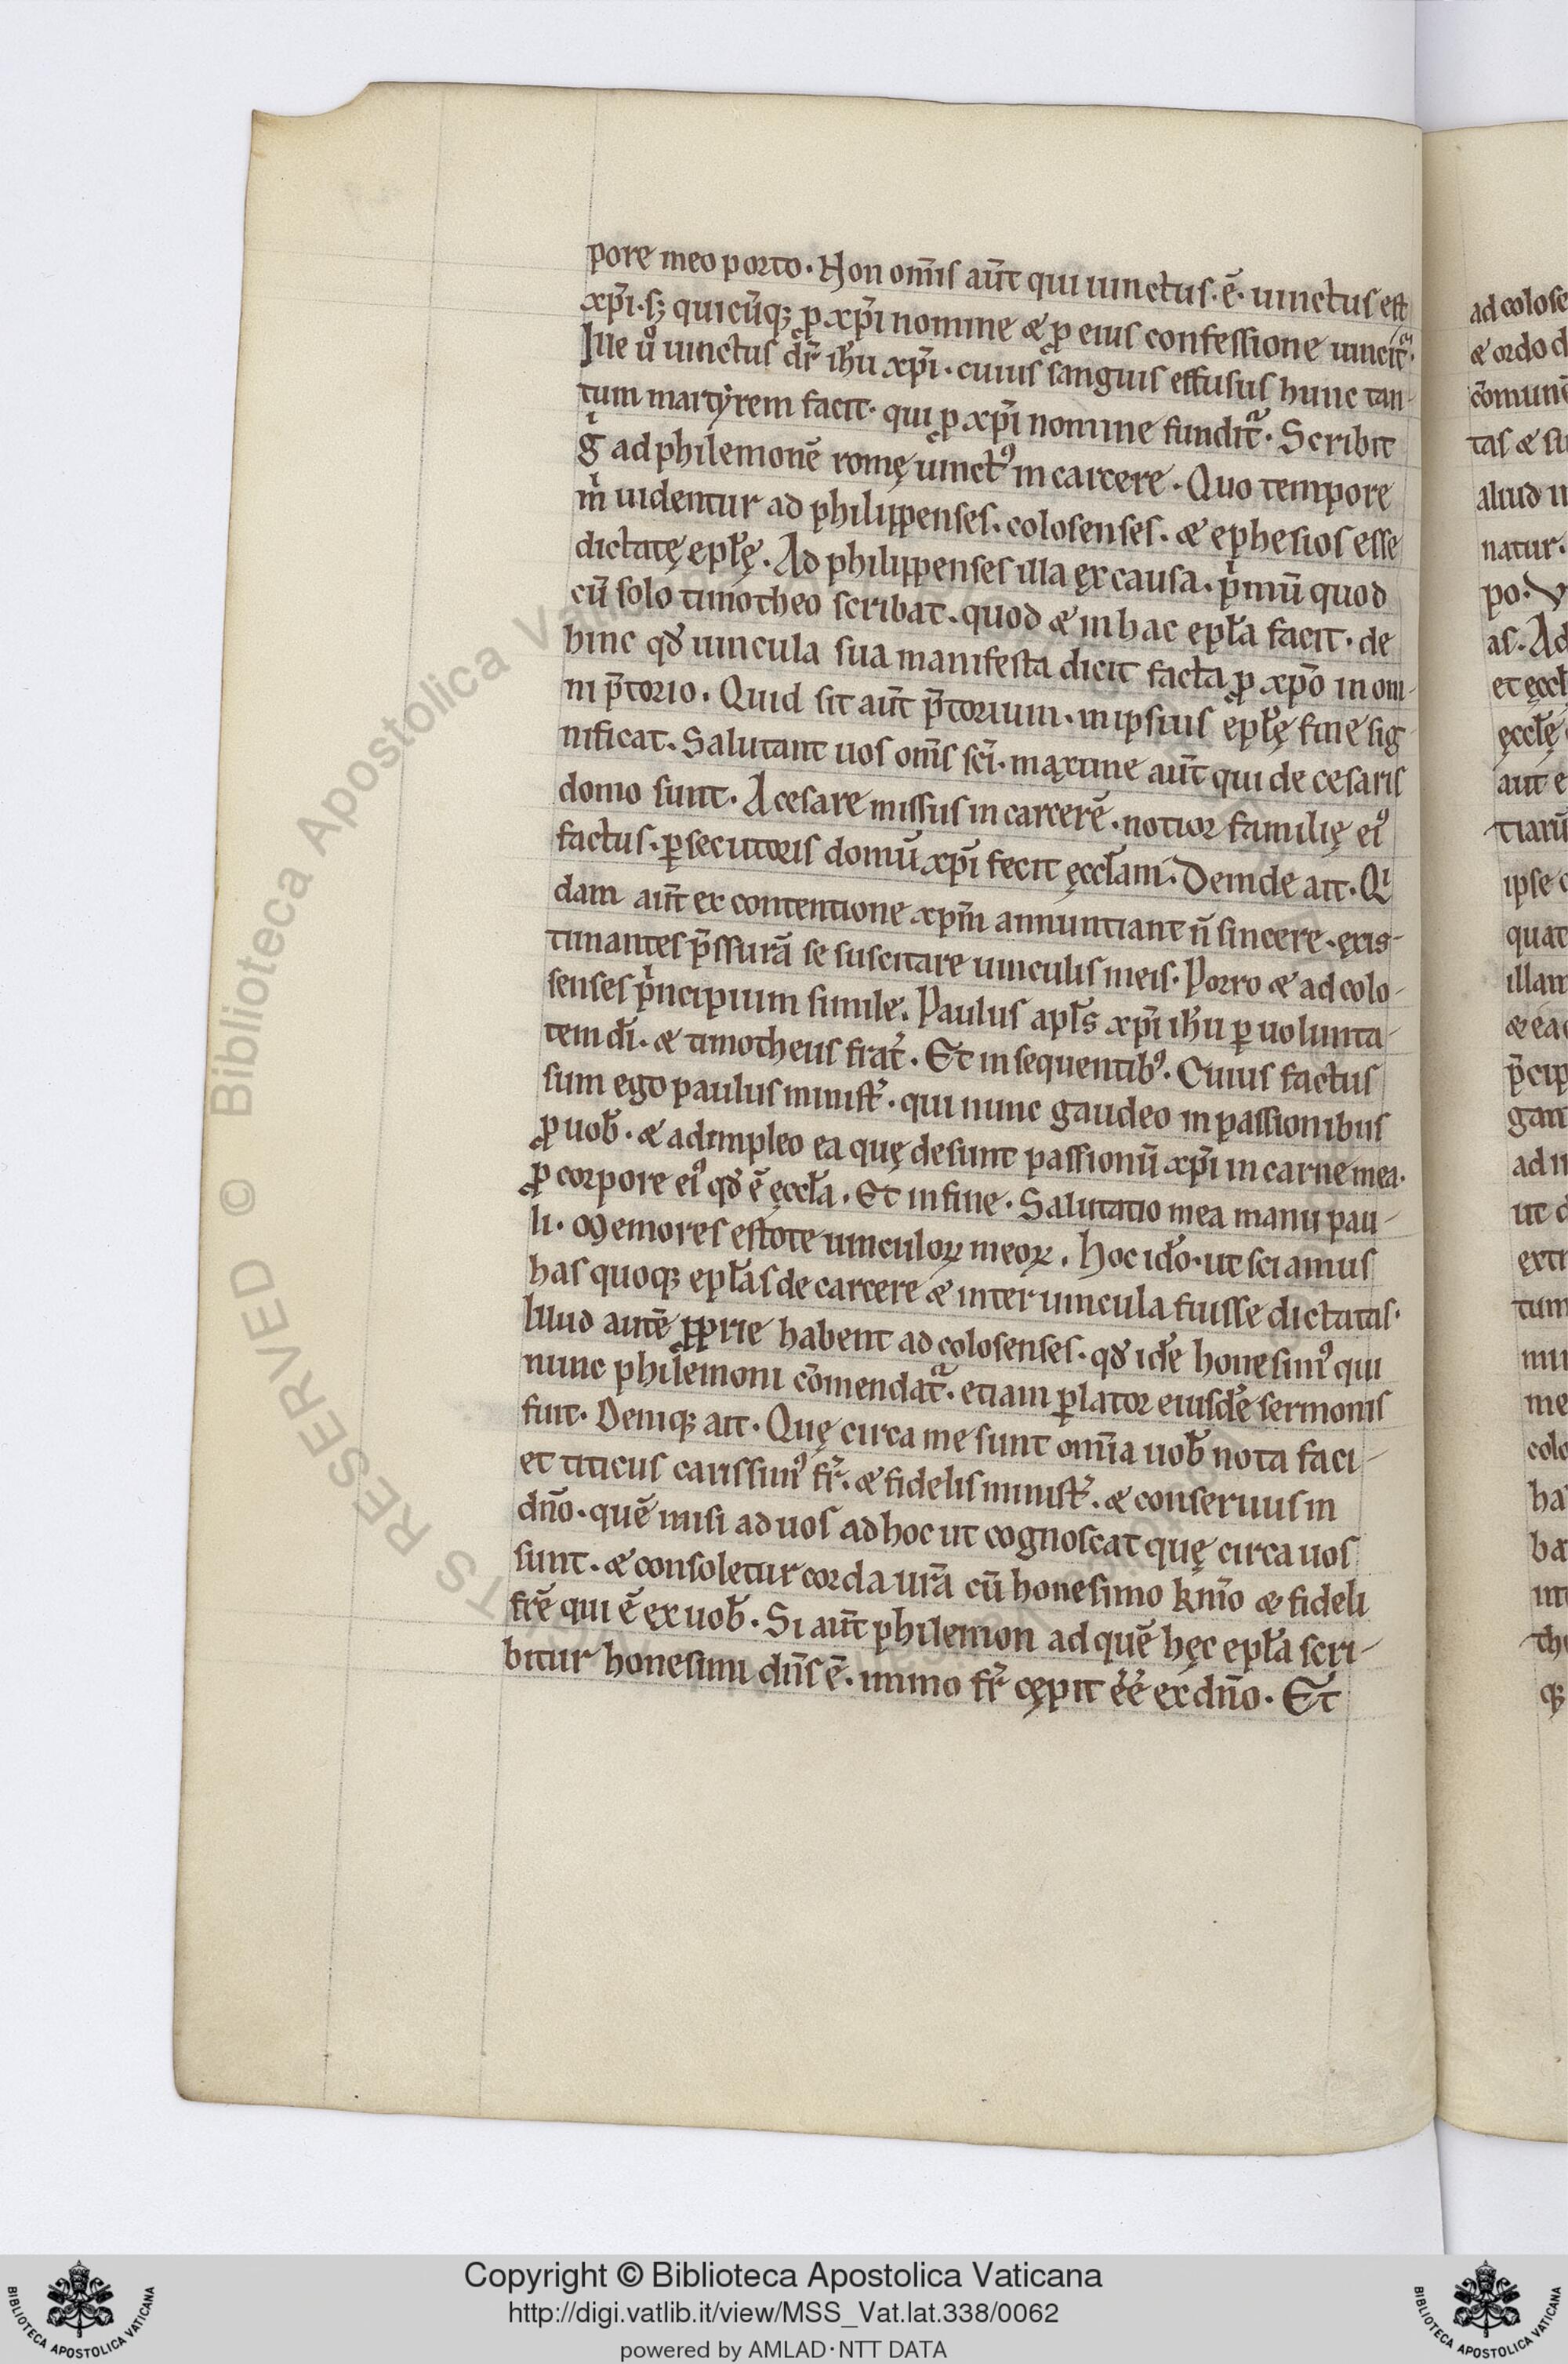 pore meo porto. Non om̅is aut̅ qui uinctus. e̅. uinctus est
xp̅i. s; quicu̅q; ꝓ xp̅i nomine & ꝓ eius confessione uincit᷑.
Ille u̅o uinctus dr̅ ih̅u xp̅i. cuius sanguis effusus hunc tan-
tum martẏrem facit. qui ꝓ xp̅i nomine fundit᷑. Scribit
gͥ ad philemone̅ romę uinctꝰ in carcere. Quo tempore
mͥ uidentur ad philippenses. colosenses. & ephesios esse
dictatę epl̅ę. Ad philippenses illa ęx causa. pͥmu̅ quod
cu̅ solo timotheo scribat. quod & in hac epl̅a facit. de
hinc qđ uincula sua manifesta dicit facta ꝓ xp̅o in om-
ni p̅torio. Quid sit aut̅ p̅torium. in ipsius epl̅ę fine sig
nificat. Salutant uos om̅s sc̅i. maxime aut̅ qui de cesaris
domo sunt. A cesare missus in carcere̅. notior familię eiꝰ
factus. ꝑsecutoris domu̅ xp̅i fecit ęccl̅am. Deinde ait. Qͥ
dam aut̅ ex contentione xp̅m annuntiant n̅ sincere. ęxis-
timantes p̅ssura̅ se suscitare uinculis meis. Porro & ad colo-
senses pͥncipium simile. Paulus apl̅s xp̅i ih̅u ꝑ uolunta-
tem di̅. & timotheus frat̅. Et in sequentibꝰ. Cuius factus
sum ego paulus minist̅. qui nunc gaudeo in passionibus
ꝓ uob̅. & adimpleo ea quę desunt passionu̅ xp̅i in carne mea.
ꝓ corpore eiꝰ qđ e̅ ęccl̅a. Et in fine. Salutatio mea manu pau-
li. Memores estote uinculoꝝ meoꝝ. Hoc id̅o. ut sciamus
has quoq; epl̅as de carcere & inter uincula fuisse dictatas.
Illud aute̅ ꝓprie habent ad colosenses. qđ ide̅ honesimꝰ qui
nunc philemoni co̅mendat᷑. etiam ꝑlator eiusde̅ sermonis
fuit. Deniq; ait. Quę circa me sunt om̅ia uob̅ nota faci-
et titicus carissimꝰ fr̅. & fidelis minist̅. & conseruus in
dn̅o. que̅ misi ad uos ad hoc ut cognoscat quę circa uos
sunt. & consoletur corda ur̅a cu̅ honesimo km̅o & fideli
fr̅e qui e̅ ex uob̅. Si aut̅ philemon ad que̅ hęc epl̅a scri-
bitur honesimi dn̅s e̅. immo fr̅ cępit e̅e̅ ex dn̅o. Et
ad colose
& ordo d
co̅mune̅
tas & su
aliud u
natur.
po. V
as. Ad
et ęccl̅
ęccl̅ę
aut e
tiaru̅
ipse c
quat
illam
& ea
p̅cip
gan
ad n
ut c
extr
tum
mu
me
colo
ha
ba
int
th
q;
© Biblioteca Apostolica Vaticana
Copyright © Biblioteca Apostolica Vaticana
http://digi.vatlib.it/view/MSS_Vat.lat.338/0062
powered by AMLAD·NTT DATA
BIBLIOTECA APOSTOLICA VATICANA
BIBLIOTECA APOSTOLICA VATICANA